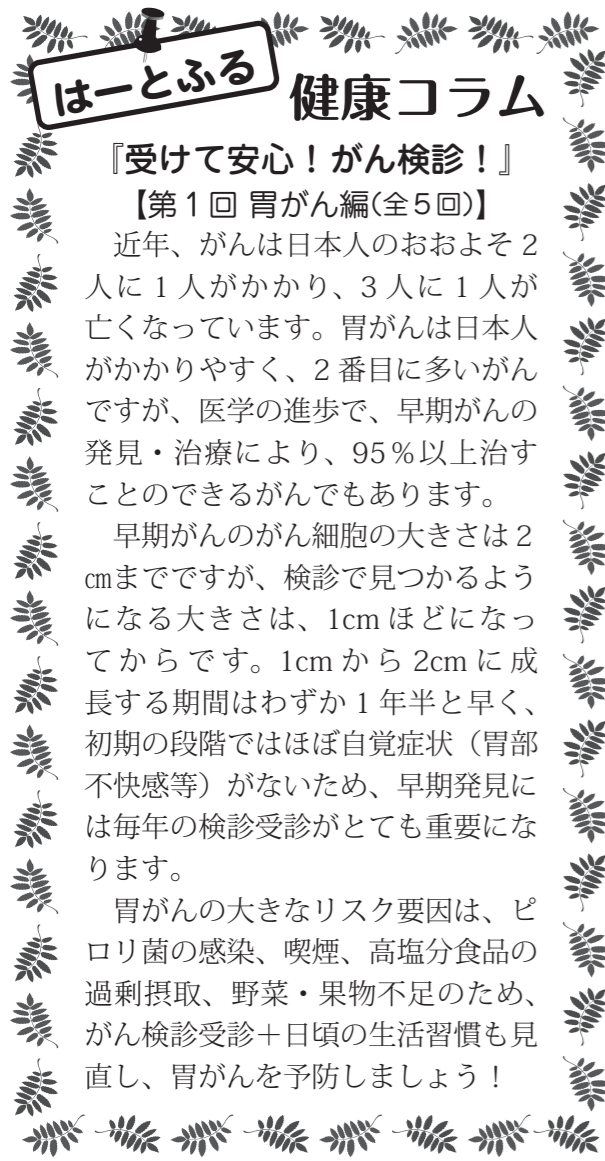 はーとふる
健康コラム
『受けて安心！がん検診！』
【第１回 胃がん編(全５回)】
　近年、がんは日本人のおおよそ２
人に１人がかかり、３人に１人が
亡くなっています。胃がんは日本人
がかかりやすく、２番目に多いがん
ですが、医学の進歩で、早期がんの
発見・治療により、95％以上治す
ことのできるがんでもあります。
　早期がんのがん細胞の大きさは２
㎝までですが、検診で見つかるよう
になる大きさは、1cm ほどになっ
てからです。1cm から 2cm に成
長する期間はわずか１年半と早く、
初期の段階ではほぼ自覚症状（胃部
不快感等）がないため、早期発見に
は毎年の検診受診がとても重要にな
ります。
　胃がんの大きなリスク要因は、ピ
ロリ菌の感染、喫煙、高塩分食品の
過剰摂取、野菜・果物不足のため、
がん検診受診＋日頃の生活習慣も見
直し、胃がんを予防しましょう！